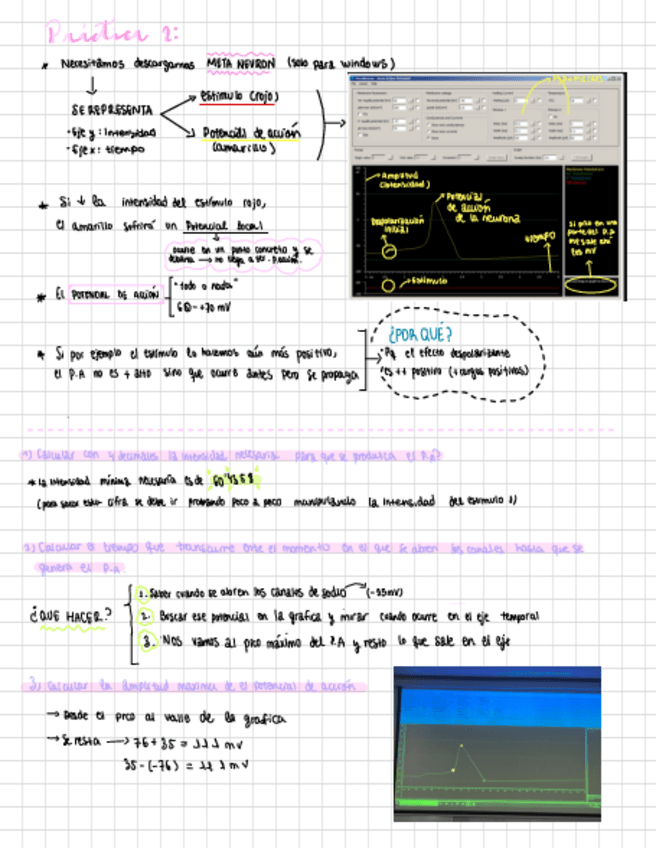 Práctica 2:
* Necesitamos descargarnos META NEURON (solo para windows)
SE REPRESENTA
· Eje y: Intensidad
· Eje x: tiempo
Estímulo (rojo)
Potencial de acción
(amarillo)
* Si ↓ la intensidad del estímulo rojo,
el amarillo sufrirá un Potencial local
ocurre en un punto concreto y se
* EL POTENCIAL DE ACCIÓN
"todo o nada"
Amplitud
(intensidad)
Potencial
de acción
de la neurona
Despolarización
inicial
tiempo
Estímulo
Si pulso en una
parte del P.A
me sale
los mV
* Si por ejemplo el estímulo lo hacemos aún más positivo,
el P.A no es + alto sino que ocurre antes pero se propaga
¿POR QUÉ?
Pq el efecto despolarizante
es ++ positivo (+ cargas positivas)
1) Calcular con 4 decimales la intensidad necesaria para que se produzca el P.A?
* La intensidad mínima necesaria es de
(para saber esta cifra se debe ir probando poco a poco manipulando la intensidad del estímulo 1)
2) Calcular el tiempo que transcurre entre el momento en el que se abren los canales hasta que se
genera el P.A
¿QUE HACER?
1. Saber cuando se abren los canales de sodio
2. Buscar ese potencial en la grafica y mirar cuándo ocurre en el eje temporal
3. Nos vamos al pico máximo del P.A y resto lo que sale en el eje
3) Calcular la amplitud maxima de el potencial de acción
→ Desde el pico al valle de la grafica
→ Se resta → 76 + 35 = 111 mV
35 - (-76) = 111 mV